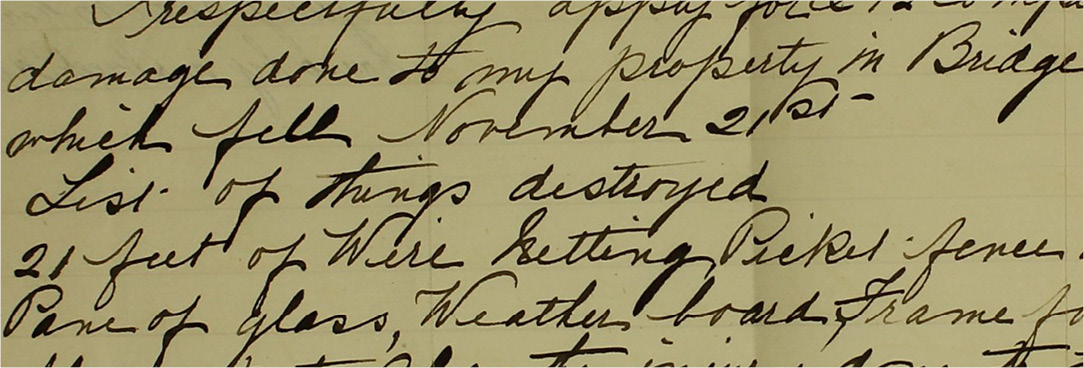 I respectfully apply for
damage done to my property in Bridge
which fell November 21st
List of things destroyed
21 feet of Wire Netting, Picket fence
Pane of glass, Weather board, Frame fo